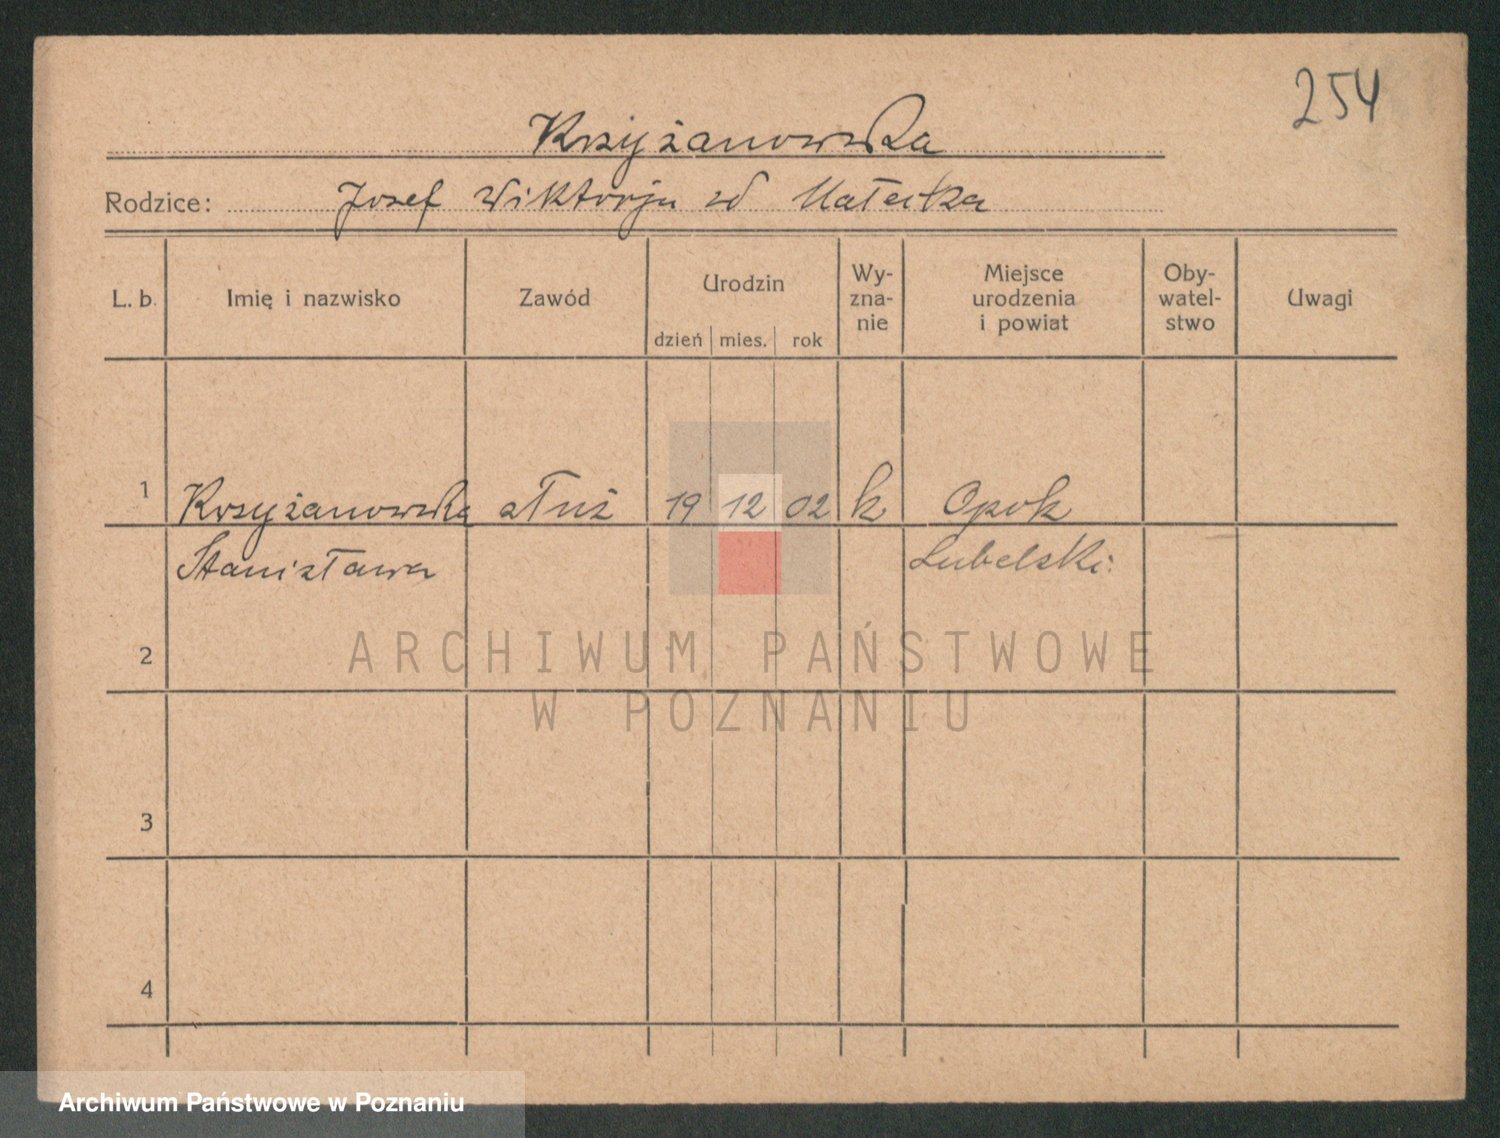 254
Krzyżanowska
Rodzice: Josef Wiktorja zd Małecka
L. b. Imię i nazwisko Zawód Urodzin dzień mies. rok Wy-zna-nie Miejsce urodzenia i powiat Oby-watel-stwo Uwagi
1 Krzyżanowska służ 19 12 02 k Opok
Stanisława Lubelski
2
ARCHIWUM PAŃSTWOWE
W POZNANIU
3
4
Archiwum Państwowe w Poznaniu